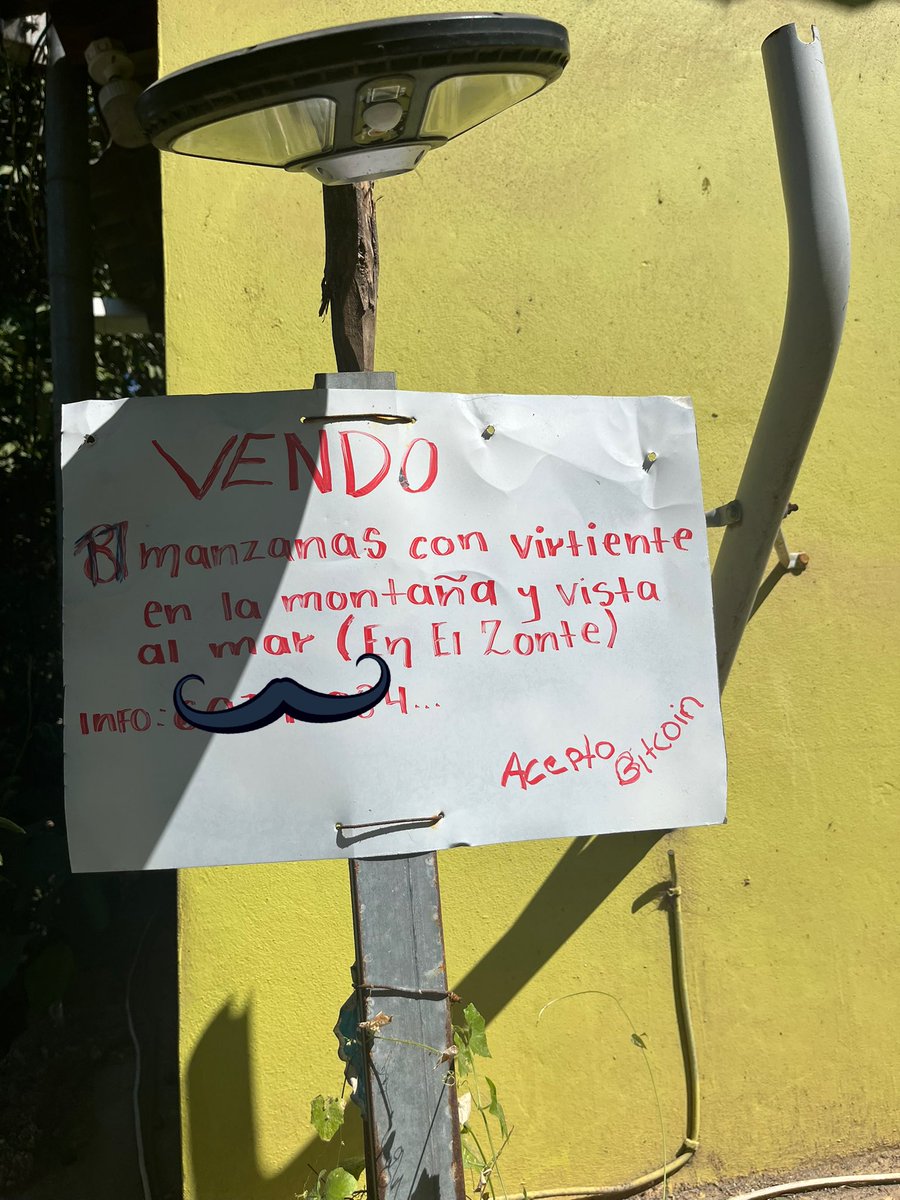 VENDO
manzanas con virtiente
en la montaña y vista
al mar (En El Zonte)
INFO:
Acepto Bitcoin